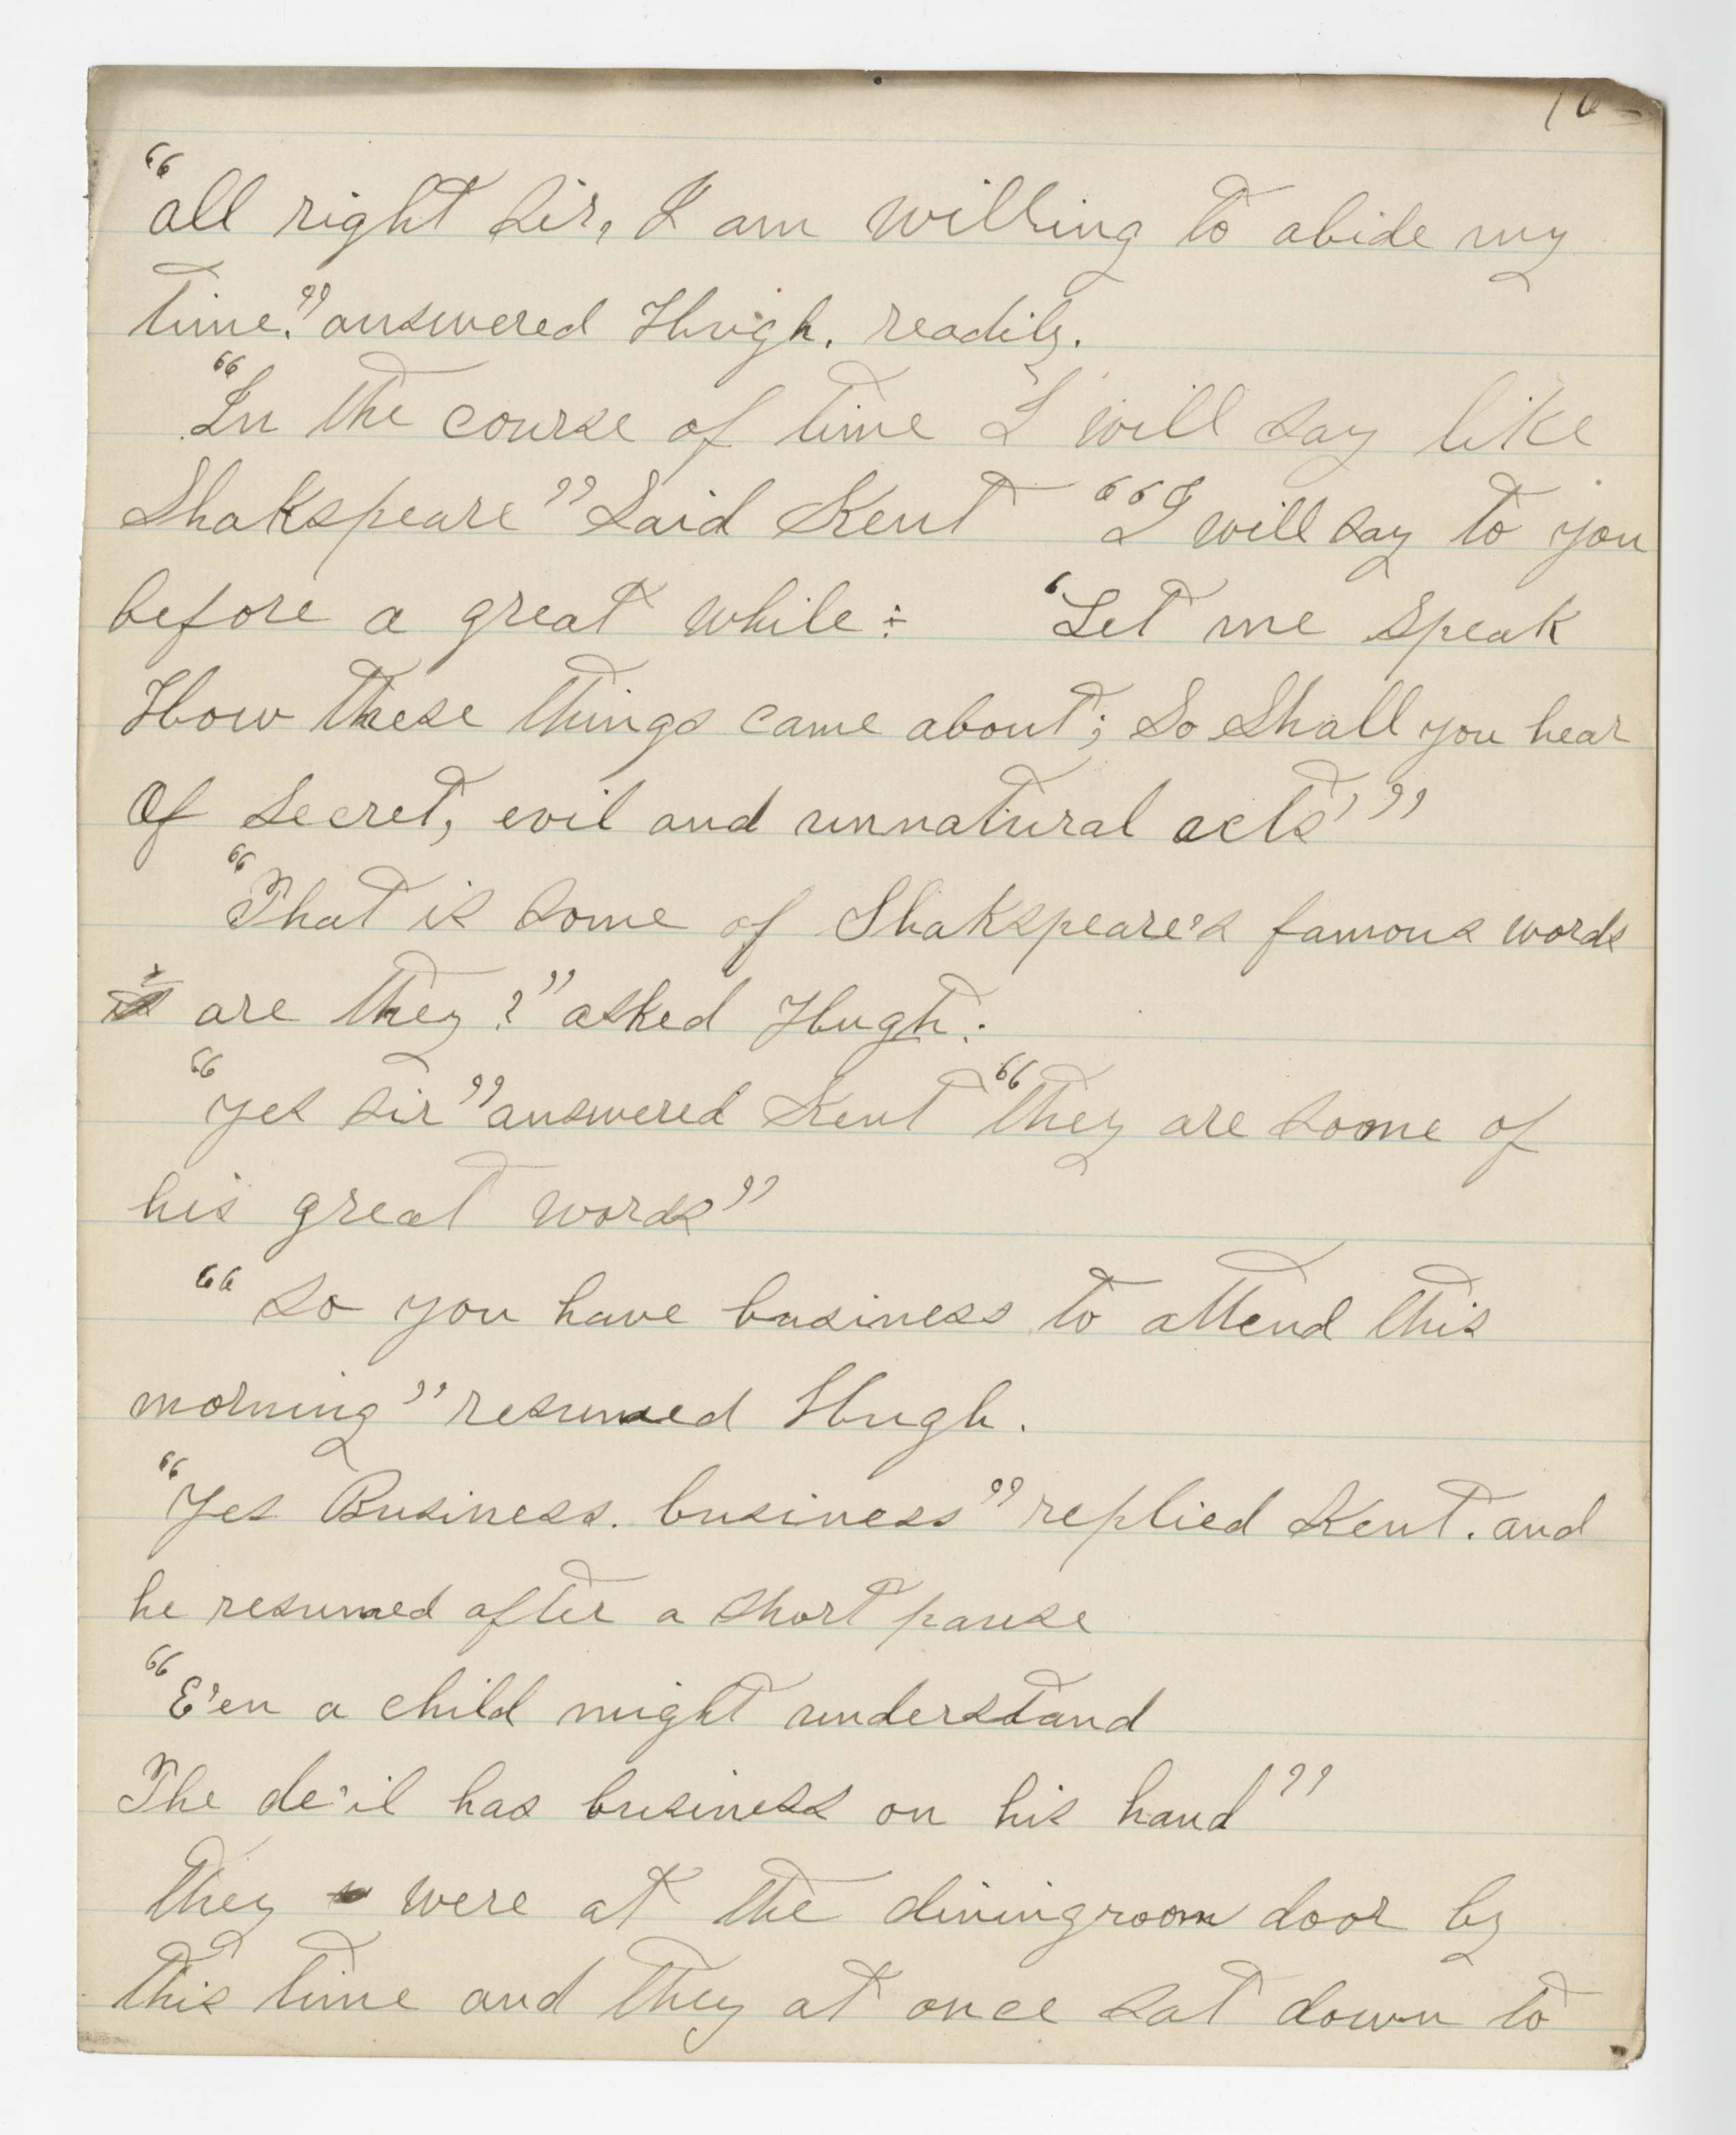 16
"all right sir, I am willing to abide my
time." answered Hugh. readily.
"In the course of time I will say like
Shakspeare" said Kent "I will say to you
before a great while: 'Let me speak
How these things came about; So Shall you hear
Of secret, evil and unnatural acts'"
"That is some of Shakspeare's famous words
are they?" asked Hugh.
"yes sir" answered Kent "they are some of
his great words"
"so you have business to attend this
morning" resumed Hugh.
"Yes Business. business" replied Kent. and
he resumed after a short pause
"E'en a child might understand
The de'il has business on his hand"
They were at the diningroom door by
this time and they at once sat down to